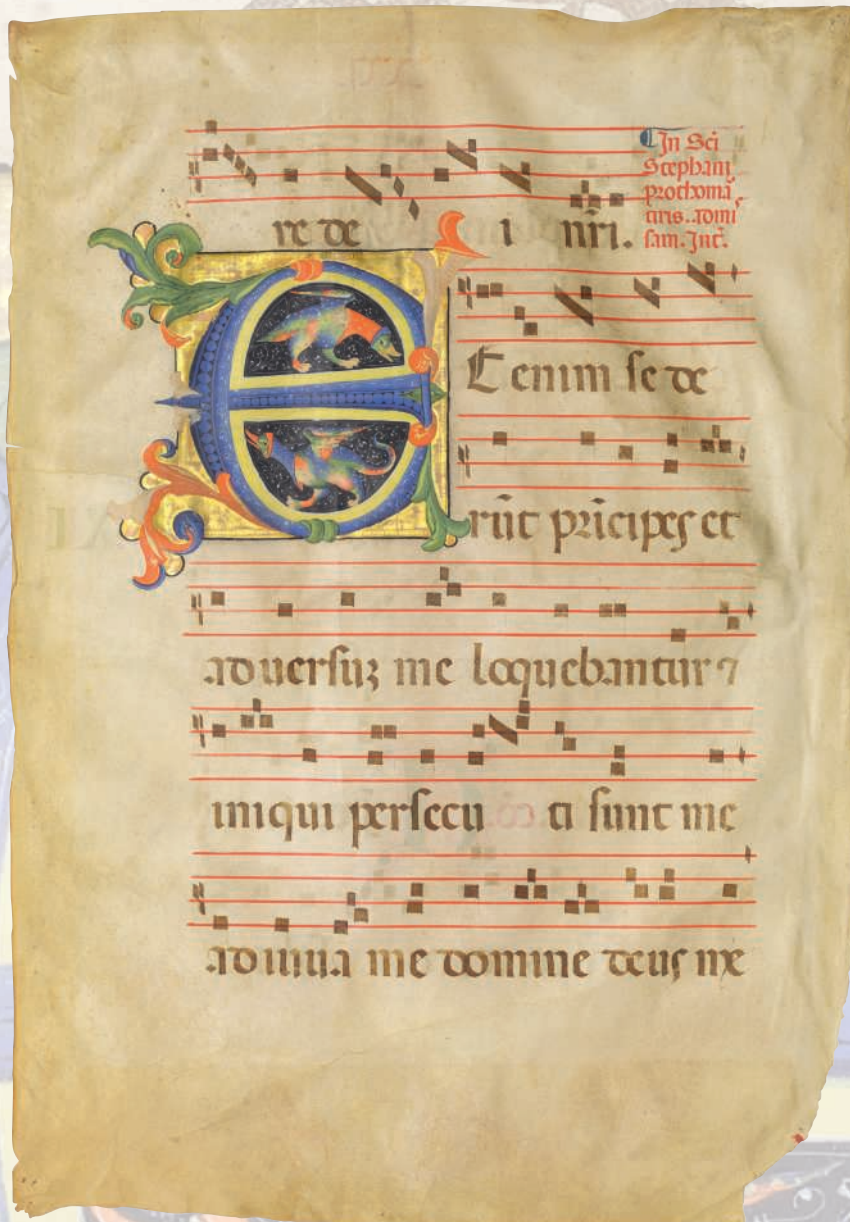 re de i nr̄i.
In Sc̄i
Stephani
prothoma
tiris. ad mi
sam. Int̄.
Et enim se de
rūt prīcipes et
aduersuz me loquebantur ⁊
iniqui persecu ti sunt me
adiuua me domine deus me